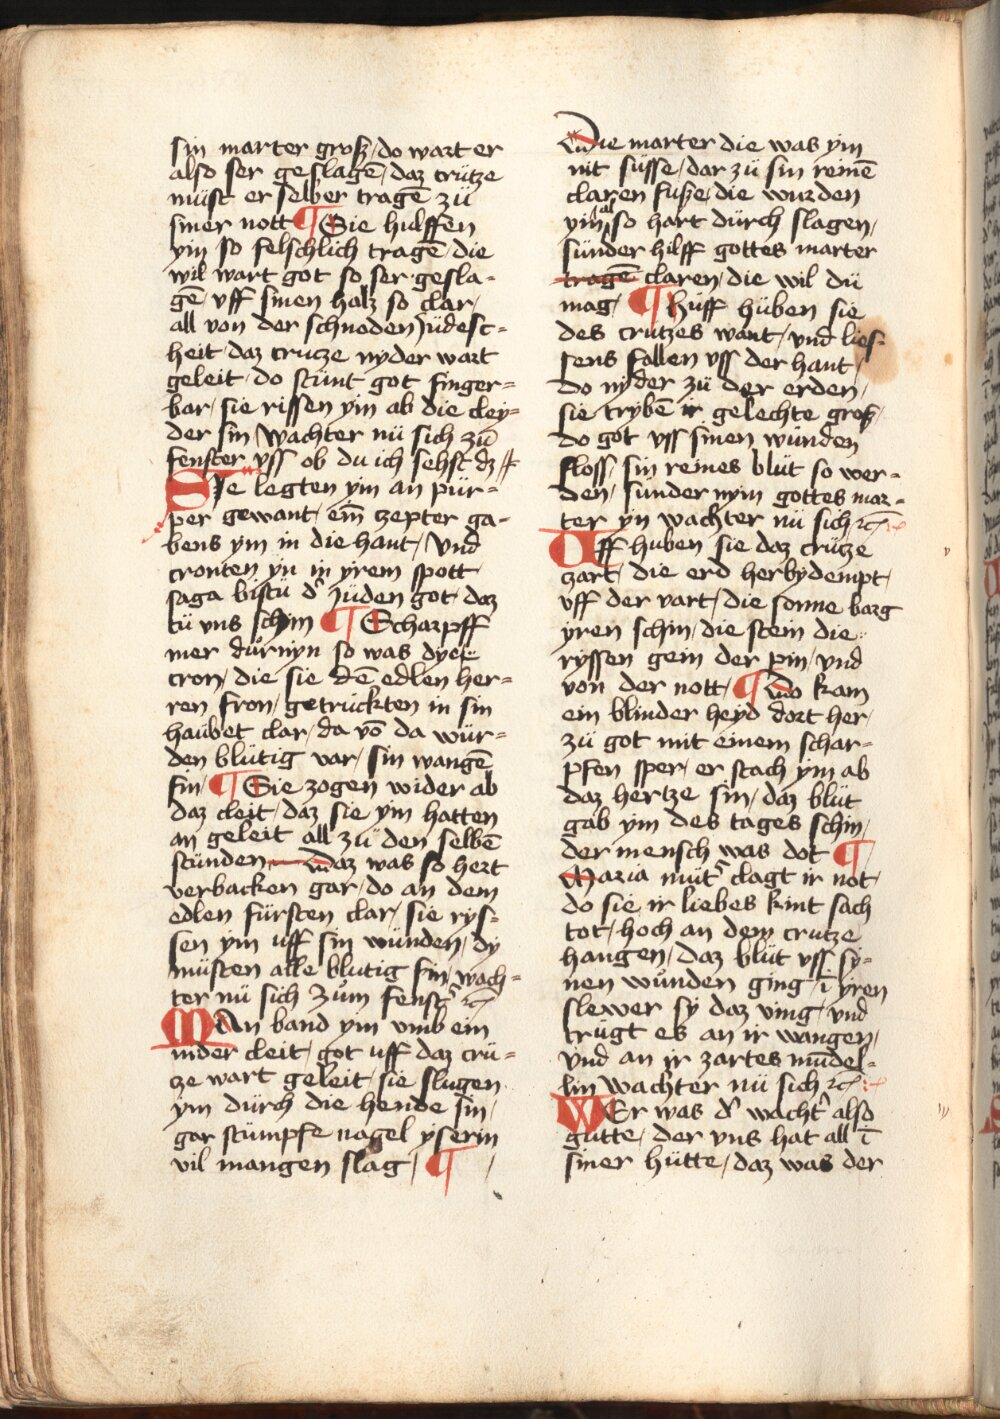 sin marter groß / do wart er
also ser geslagē / daz crütze
müst er selber tragē zü
siner nott ¶ Sie hulffen
yin so felschlich tragē / die
wil wart got so ser gesla-
gē / vff sinen halz so clar /
all von der schnoden Jüdesc-
heit / daz crutze nyder wart
geleit / do stünt got finger-
bar / sie rissen yin ab die cley-
der sin / Wachter nü sich zü
fenster vss ob du ich sehst dz
Sie legten yin an pür-
per gewant / eim̄ zepter ga-
bens ym in die hant / Vnd
cronten yn in yrem spott
saga bistu d' Jüden got / daz
tü vns schin ¶ Scharpff
mer dürnyn so was dye
cron / die sie dē edlen her-
ren fron / getrückten in sin
haübet clar / da vō da wür-
den blütig var / sin wangē
fin / ¶ Sie zogen wider ab
daz cleit / daz sie ym hatten
an geleit all zü den selbē
stünden daz was so hert
verbacken gar / do an dem
edlen fürsten clar / sie rys-
sen ym uff sin wünden / dy
müsten alle blutig sin / wach-
ter nü sich zům fenst' ꝛc̄
Man band ym vmb ein
nider cleit / got uff daz crü-
tze wart geleit / sie slugen
ym dürch die hende sin /
gar stümpfe nagel yserin
vil mangen slag / ¶
Die marter die was ym
nit süsse / dar zü sin reinē
claren fusse / die wurden
yin al so hart dürch slagen /
sünder hilff gottes marter
tragē claren / die wil dü
mag / ¶ Huff hüben sie
des crutzes want / vnd lies-
sens fallen vss der hant /
do nyder zü der erden /
sie trybē ir gelechte groß /
do got vss sinen wünden
floss / sin reines blüt so wer-
den / sunder nym gottes mar-
ter yn wachter nü sich ꝛc̄
Uff huben sie daz crütze
zart / die erd herbydempt /
vff der vart / die sonne barg
yren schin / die stein die
ryssen gein der pin / vnd
von der nott / ¶ do kam
ein blinder heyd dort her /
zü got mit einem schar-
pfen sper / er stach ym ab
daz hertze sin / daz blüt
gab ym des tages schin /
der mensch was dot ¶
Maria müt' clagt ir not /
do sie ir liebes kint sach
tot / hoch an dem crutze
hangen / daz blüt vss sy-
nen wůnden ging / ī yren
slewer sy daz ving / vnd
trügt es an ir wangen /
vnd an ir zartes mūdel-
lin wachter nü sich ꝛc̄
WEr was d' wacht' also
gütte / der vns hat all ī
siner hütte / daz was der